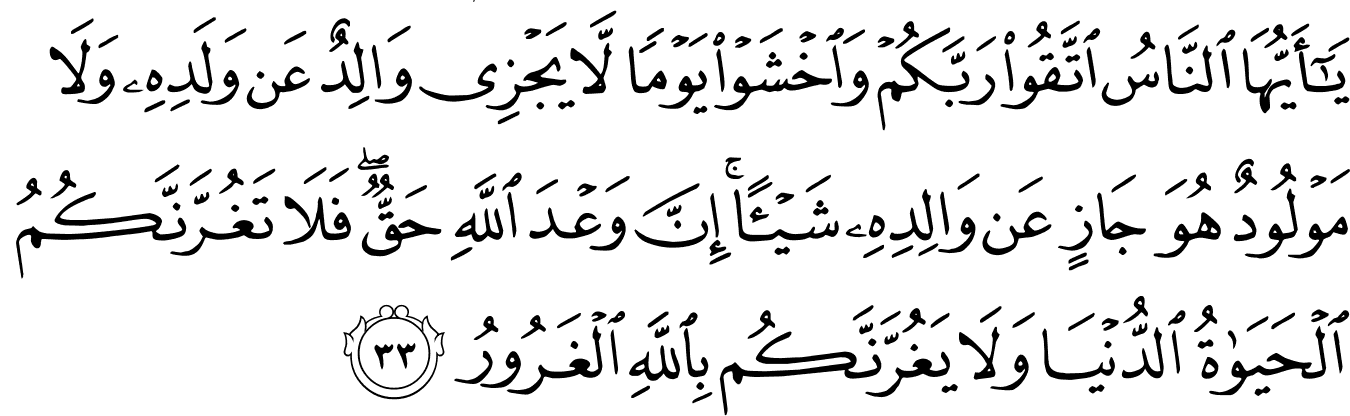 يَـٰٓأَيُّهَا ٱلنَّاسُ ٱتَّقُوا۟ رَبَّكُمْ وَٱخْشَوْا۟ يَوْمًا لَّا يَجْزِى وَالِدٌ عَن وَلَدِهِۦ وَلَا
مَوْلُودٌ هُوَ جَازٍ عَن وَالِدِهِۦ شَيْـًٔا ۚ إِنَّ وَعْدَ ٱللَّهِ حَقٌّ ۖ فَلَا تَغُرَّنَّكُمُ
ٱلْحَيَوٰةُ ٱلدُّنْيَا وَلَا يَغُرَّنَّكُم بِٱللَّهِ ٱلْغَرُورُ ٣٣